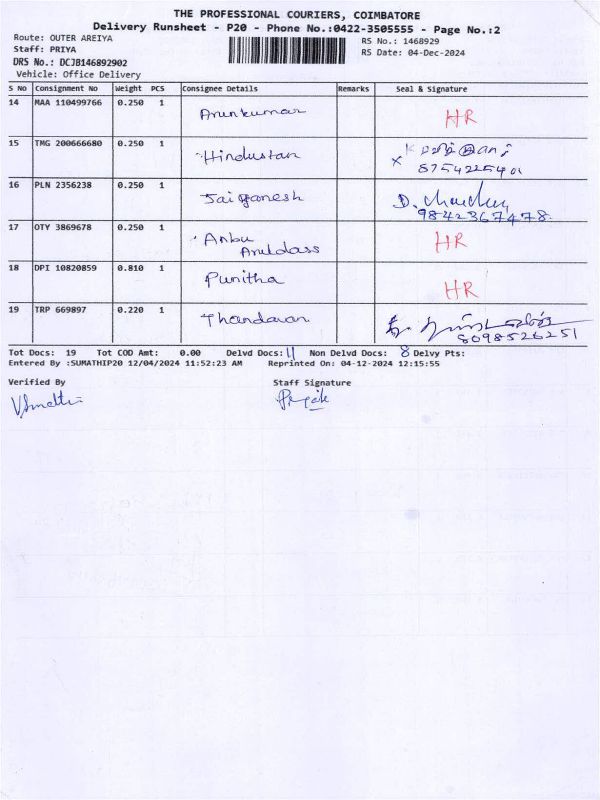 THE PROFESSIONAL COURIERS, COIMBATORE
Delivery Runsheet - P20 - Phone No.:0422-3505555 - Page No.:2
Route: OUTER AREIYA
RS No.: 1468929
Staff: PRIYA
RS Date: 04-Dec-2024
DRS No.: DCJB146892902
Vehicle: Office Delivery
S No Consignment No Weight PCS Consignee Details Remarks Seal & Signature
14 MAA 110499766 0.250 1 Arunkumar HR
15 TMG 200666680 0.250 1 Hindustan
8754225401
16 PLN 2356238 0.250 1 Jai ganesh
9842367478
17 OTY 3869678 0.250 1 Anbu HR
Aruldass
18 DPI 10820859 0.810 1 Punitha HR
19 TRP 669897 0.220 1 Thandavan
8098526251
Tot Docs: 19 Tot COD Amt: 0.00 Delvd Docs: 11 Non Delvd Docs: 8 Delvy Pts:
Entered By :SUMATHIP20 12/04/2024 11:52:23 AM Reprinted On: 04-12-2024 12:15:55
Verified By Staff Signature